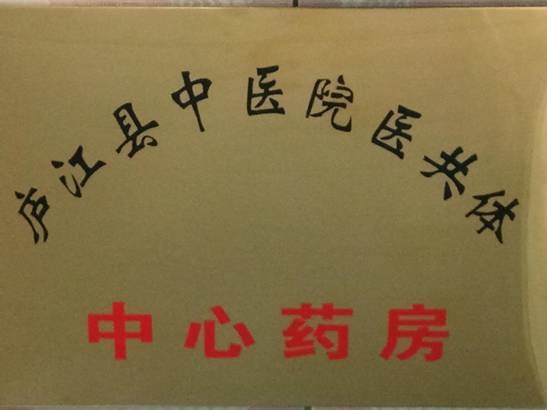 庐江县中医院医共体
中心药房